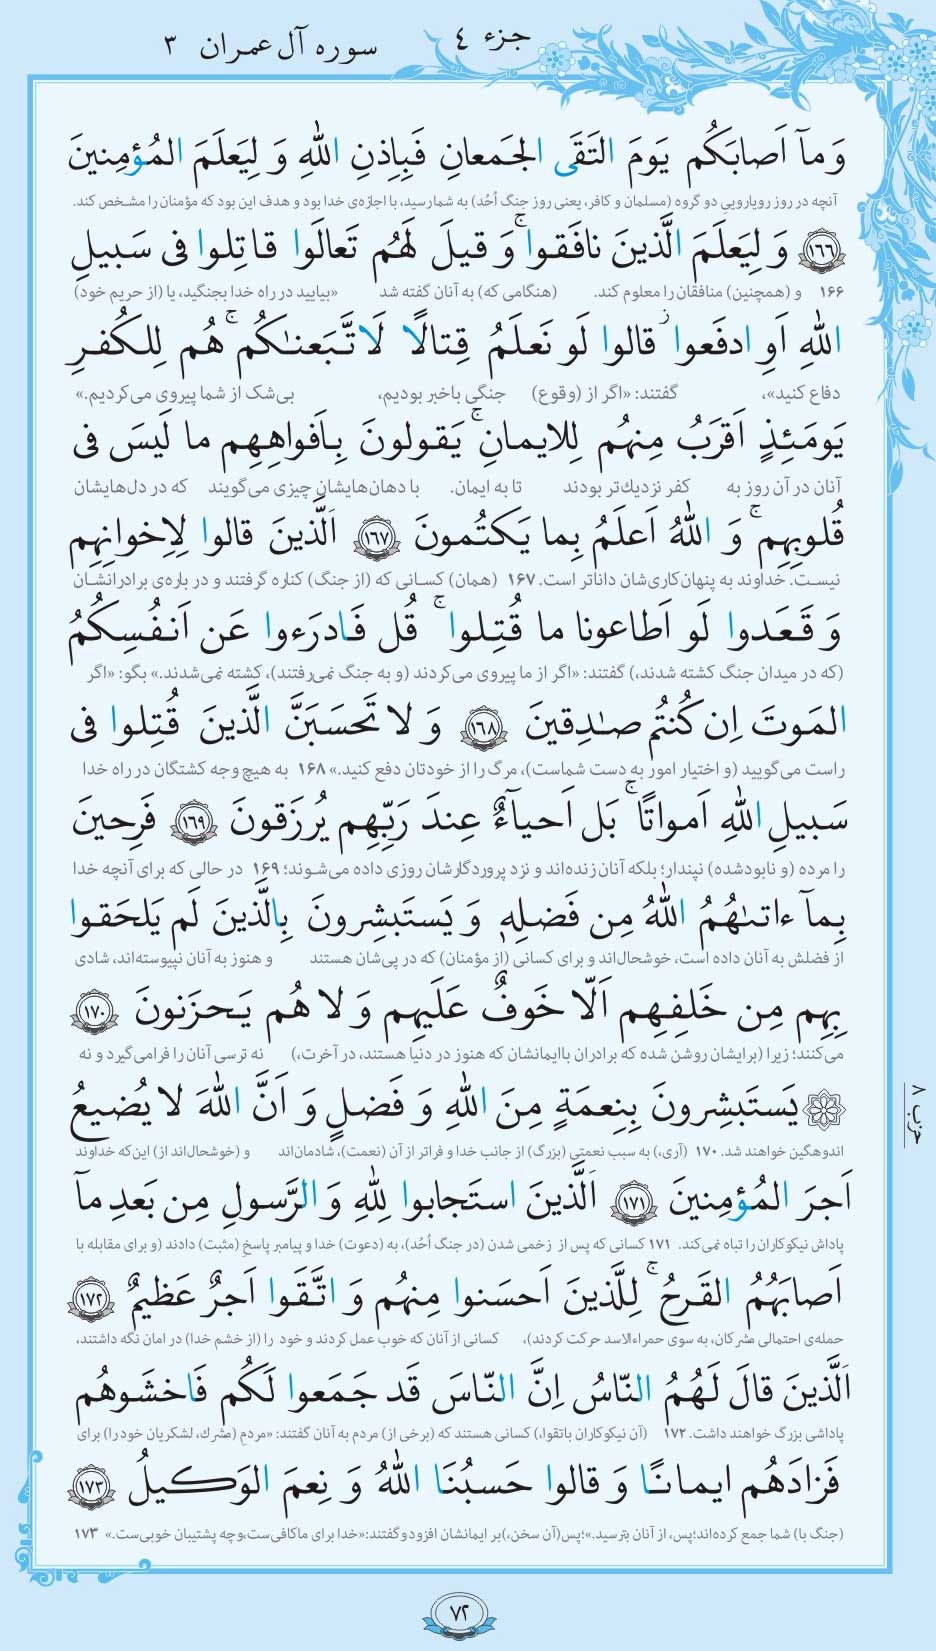 جزء ٤
سوره آل عمران ٣
وَ مآ اَصابَكُم يَومَ التَقَى الجَمعانِ فَبِاِذنِ اللهِ وَ لِيَعلَمَ المُؤمِنينَ
آنچه در روز رویاروییِ دو گروه (مسلمان و کافر، یعنی روز جنگ اُحُد) به شما رسید، با اجازه‌ی خدا بود و هدف این بود که مؤمنان را مشخص کند.
﴿١٦٦﴾ وَ لِيَعلَمَ الَّذينَ نافَقوا ۚ وَ قيلَ لَهُم تَعالَوا قاتِلوا فى سَبيلِ
۱۶۶ و (همچنین) منافقان را معلوم کند. (هنگامی که) به آنان گفته شد «بیایید در راه خدا بجنگید، یا (از حریم خود)
اللهِ اَوِ ادفَعوا ۖ قالوا لَو نَعلَمُ قِتالًا لَاتَّبَعنٰكُم ۚ هُم لِلكُفرِ
دفاع کنید»، گفتند: «اگر از (وقوع) جنگی باخبر بودیم، بی‌شک از شما پیروی می‌کردیم.»
يَومَئِذٍ اَقرَبُ مِنهُم لِلايمانِ ۚ يَقولونَ بِاَفواهِهِم ما لَيسَ فى
آنان در آن روز به کفر نزدیك‌تر بودند تا به ایمان. با دهان‌هایشان چیزی می‌گویند که در دل‌هایشان
قُلوبِهِم ۚ وَ اللهُ اَعلَمُ بِما يَكتُمونَ ﴿١٦٧﴾ اَلَّذينَ قالوا لِاِخوانِهِم
نیست. خداوند به پنهان‌کاری‌شان داناتر است. ۱۶۷ (همان) کسانی که (از جنگ) کناره گرفتند و در باره‌ی برادرانشان
وَ قَعَدوا لَو اَطاعونا ما قُتِلوا ۚ قُل فَادرَءوا عَن اَنفُسِكُمُ
(که در میدان جنگ کشته شدند،) گفتند: «اگر از ما پیروی می‌کردند (و به جنگ نمی‌رفتند)، کشته نمی‌شدند.» بگو: «اگر
المَوتَ اِن كُنتُم صٰدِقينَ ﴿١٦٨﴾ وَ لا تَحسَبَنَّ الَّذينَ قُتِلوا فى
راست می‌گویید (و اختیار امور به دست شماست)، مرگ را از خودتان دفع کنید.» ۱۶۸ به هیچ وجه کشتگان در راه خدا
سَبيلِ اللهِ اَمواتًا ۚ بَل اَحيآءٌ عِندَ رَبِّهِم يُرزَقونَ ﴿١٦٩﴾ فَرِحينَ
را مرده (و نابودشده) نپندار؛ بلکه آنان زنده‌اند و نزد پروردگارشان روزی داده می‌شوند؛ ۱۶۹ در حالی که برای آنچه خدا
بِمآ ءاتىٰهُمُ اللهُ مِن فَضلِهٖ وَ يَستَبشِرونَ بِالَّذينَ لَم يَلحَقوا
از فضلش به آنان داده است، خوشحال‌اند و برای کسانی (از مؤمنان) که در پی‌شان هستند و هنوز به آنان نپیوسته‌اند، شادی
بِهِم مِن خَلفِهِم اَلّا خَوفٌ عَلَيهِم وَ لا هُم يَحزَنونَ ﴿١٧٠﴾
می‌کنند؛ زیرا (برایشان روشن شده که برادران باایمانشان که هنوز در دنیا هستند، در آخرت،) نه ترسی آنان را فرامی‌گیرد و نه
يَستَبشِرونَ بِنِعمَةٍ مِنَ اللهِ وَ فَضلٍ وَ اَنَّ اللهَ لا يُضيعُ
اندوهگین خواهند شد. ۱۷۰ (آری،) به سبب نعمتی (بزرگ) از جانب خدا و فراتر از آن (نعمت)، شادمان‌اند و (خوشحال‌اند از) این‌که خداوند
اَجرَ المُؤمِنينَ ﴿١٧١﴾ اَلَّذينَ استَجابوا لِلّٰهِ وَ الرَّسولِ مِن بَعدِ مآ
پاداش نیکوکاران را تباه نمی‌کند. ۱۷۱ کسانی که پس از زخمی شدن (در جنگ اُحُد)، به (دعوت) خدا و پیامبر پاسخِ (مثبت) دادند (و برای مقابله با
اَصابَهُمُ القَرحُ ۚ لِلَّذينَ اَحسَنوا مِنهُم وَ اتَّقَوا اَجرٌ عَظيمٌ ﴿١٧٢﴾
حمله‌ی احتمالی مشرکان، به سوی حمراءالاسد حرکت کردند)، کسانی از آنان که خوب عمل کردند و خود را (از خشم خدا) در امان نگه داشتند،
اَلَّذينَ قالَ لَهُمُ النّاسُ اِنَّ النّاسَ قَد جَمَعوا لَكُم فَاخشَوهُم
پاداشی بزرگ خواهند داشت. ۱۷۲ (آن نیکوکاران باتقوا،) کسانی هستند که (برخی از) مردم به آنان گفتند: «مردمِ (مشرك، لشکریان خود را) برای
فَزادَهُم ايمانًا وَ قالوا حَسبُنَا اللهُ وَ نِعمَ الوَكيلُ ﴿١٧٣﴾
(جنگ با) شما جمع کرده‌اند؛ پس، از آنان بترسید.»؛ پس (آن سخن،) بر ایمانشان افزود و گفتند: «خدا برای ما کافی‌ست، و چه پشتیبان خوبی‌ست.» ۱۷۳
حزب ٨
٧٢